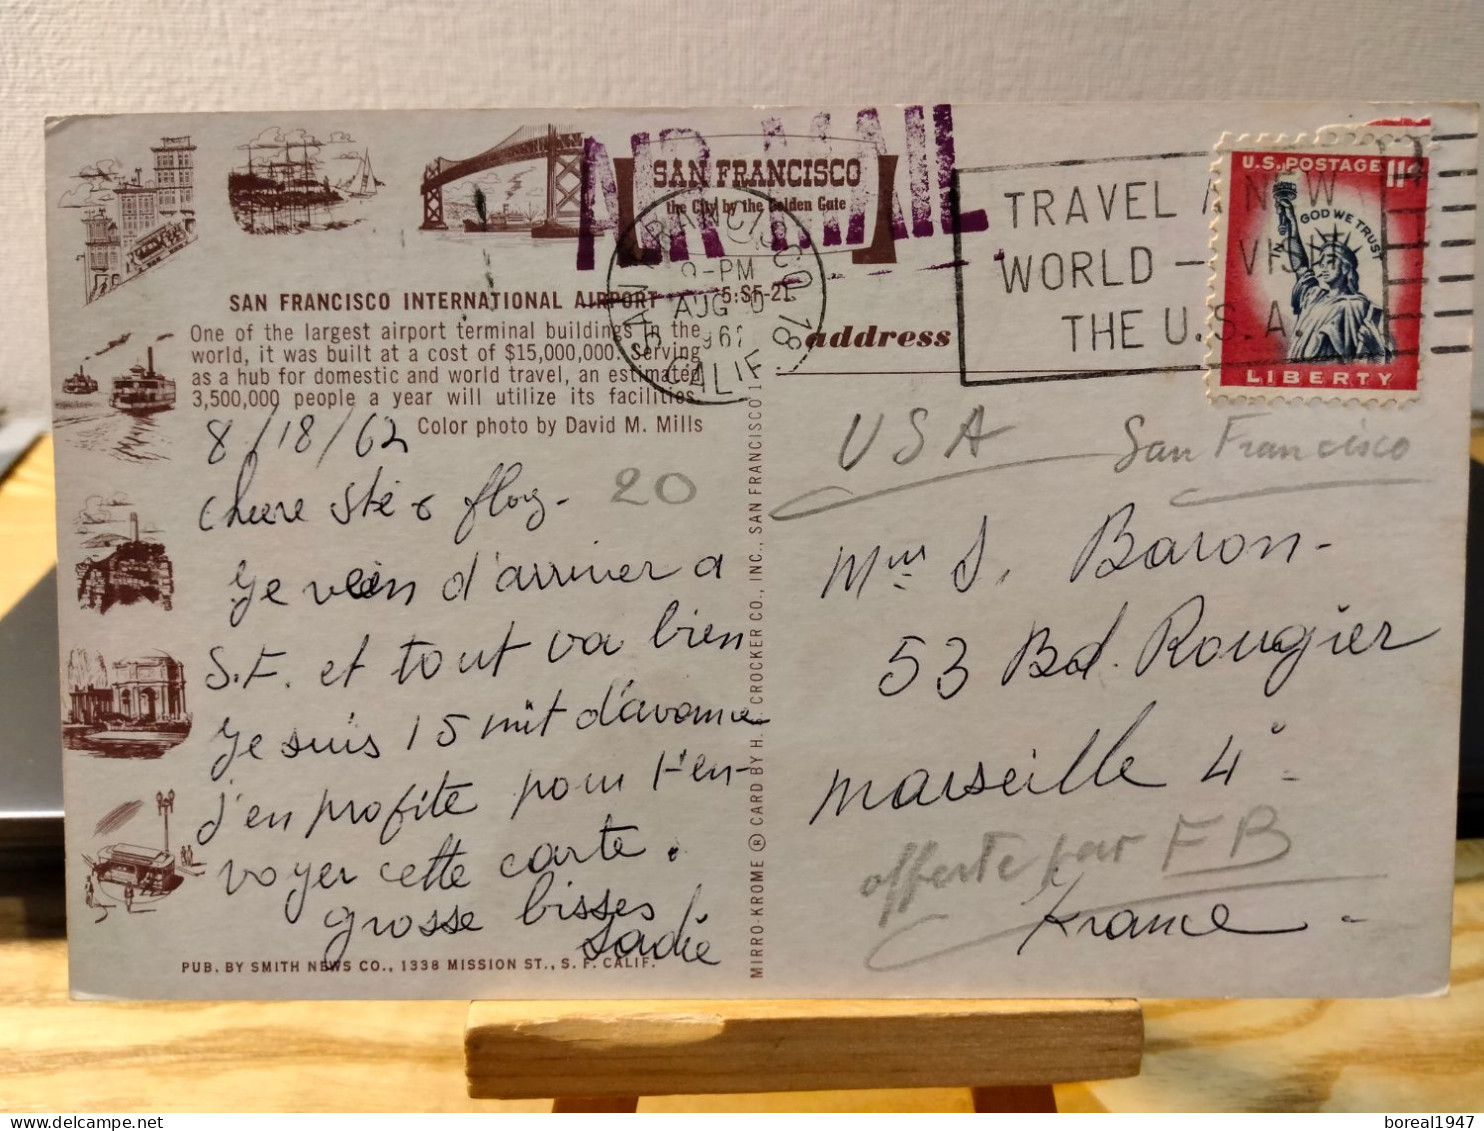 AIR MAIL
SAN FRANCISCO
the City by the Golden Gate
SAN FRANCISCO CALIF
9-PM
AUG
196
TRAVEL A NEW
WORLD — VISIT
THE U.S.A.
U.S. POSTAGE 11¢
IN GOD WE TRUST
LIBERTY
SAN FRANCISCO INTERNATIONAL AIRPORT
5:SF-21
One of the largest airport terminal buildings in the
world, it was built at a cost of $15,000,000. Serving
as a hub for domestic and world travel, an estimated
3,500,000 people a year will utilize its facilities.
Color photo by David M. Mills
address
8/18/62
20
Je viens d'arriver a
S.F. et tout va bien
Je suis 15 mit d'avance
j'en profite pour t'en-
voyer cette carte.
grosse bisses
Sadie
PUB. BY SMITH NEWS CO., 1338 MISSION ST., S. F. CALIF.
MIRRO-KROME ® CARD BY H. S. CROCKER CO., INC., SAN FRANCISCO 1
USA San Francisco
Mme S. Baron-
53 Bd. Rougier
Marseille 4e -
offerte par FB
France -
boreal1947